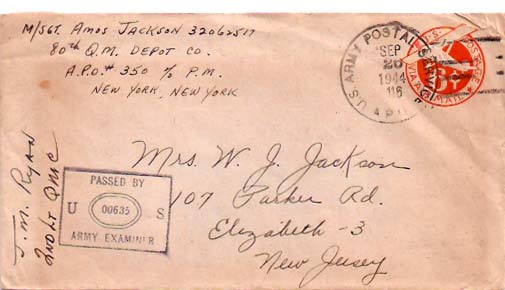 M/SGT. AMOS JACKSON 32062517
80th Q.M. DEPOT CO.
A.P.O.# 350 c/o P.M.
NEW YORK, NEW YORK
U.S. ARMY POSTAL SERVICE
SEP
20
1944
A.P.O.
U.S. POSTAGE
6¢
VIA AIR MAIL
Mrs. W. J. Jackson
107 Parker Rd.
Elizabeth - 3
New Jersey
PASSED BY
U 00635 S
ARMY EXAMINER
J. M. RYAN
2ND LT QMC